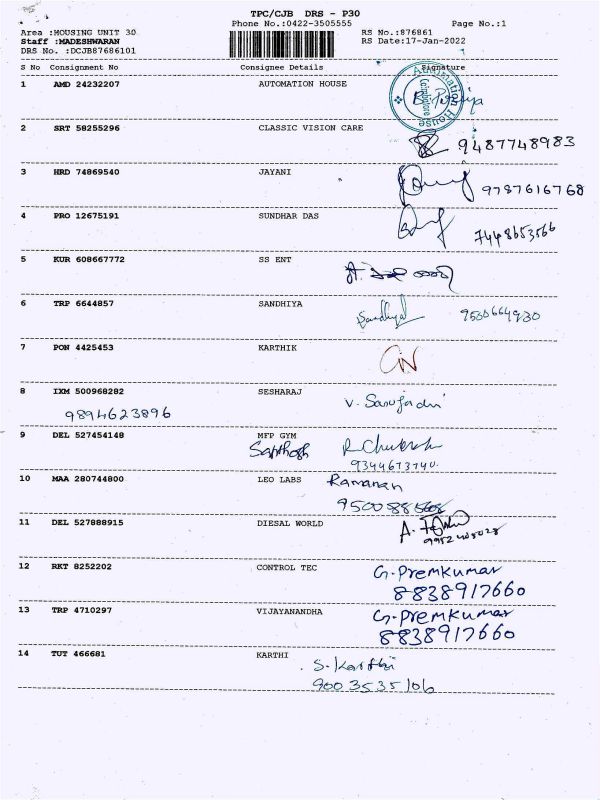 TPC/CJB DRS - P30
Phone No.:0422-3505555 Page No.:1
Area :HOUSING UNIT 30 RS No.:876861
Staff :MADESHWARAN RS Date:17-Jan-2022
DRS No. :DCJB87686101
S No Consignment No Consignee Details Signature
1 AMD 24232207 AUTOMATION HOUSE
Automation House Coimbatore
2 SRT 58255296 CLASSIC VISION CARE
9487748983
3 HRD 74869540 JAYANI
9787616768
4 PRO 12675191 SUNDHAR DAS
7448653566
5 KUR 608667772 SS ENT
6 TRP 6644857 SANDHIYA
Sandhiya 9500664930
7 PON 4425453 KARTHIK
8 IXM 500968282 SESHARAJ
9894623896
9 DEL 527454148 MFP GYM
Santhosh
9344673740
10 MAA 280744800 LEO LABS
Ramanan
11 DEL 527888915 DIESAL WORLD
12 RKT 8252202 CONTROL TEC
G.Premkumar
8838917660
13 TRP 4710297 VIJAYANANDHA
G.Premkumar
8838917660
14 TUT 466681 KARTHI
S. Karthi
9003535106